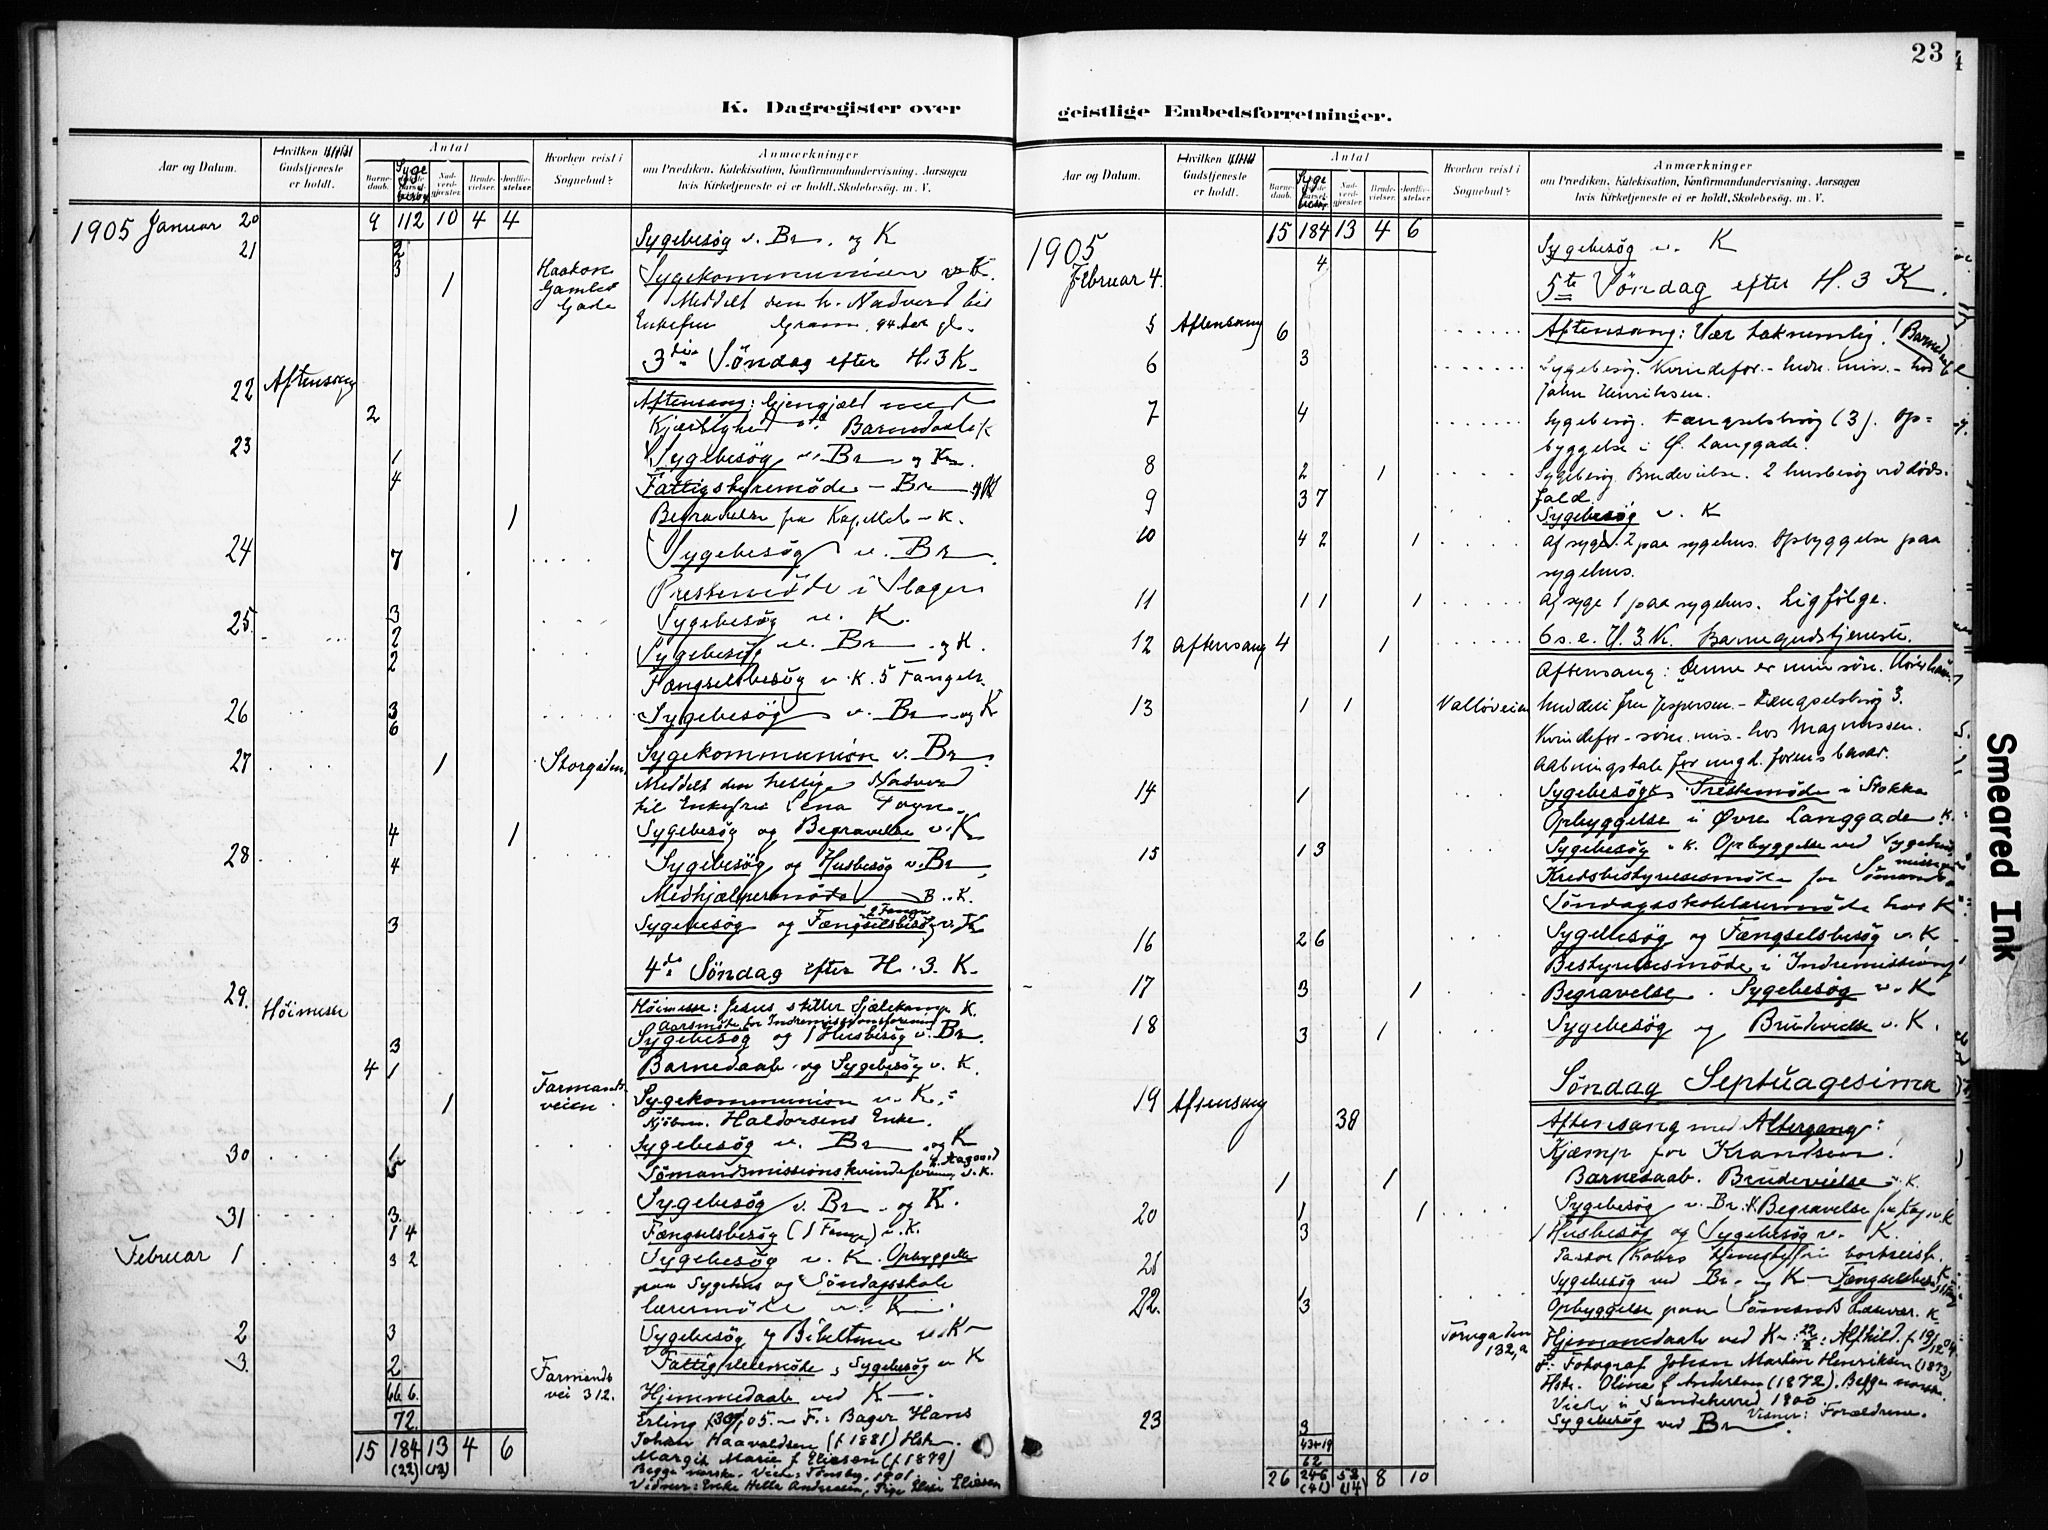 23
K. Dagregister over
geistlige Embedsforretninger.
Aar og Datum.
Hvilken
Gudstjeneste
er holdt.
Antal
Barne-
daab.
Syge
besøg
Nad-
verd-
gjester.
Brude-
vielser.
Jordfæ-
stelser.
Hvorhen reist i
Sognebud?
Anmærkninger
om Prædiken, Katekisation, Konfirmandundervisning, Aarsagen
hvis Kirketjeneste ei er holdt, Skolebesøg. m. V.
1905 Januar 20 9 112 10 4 4
Sygebesøg v. Br. og K
21 2
3 1 Haakon Gamles Gade Sygekommunion v. K.
Meddelt den h. Nadverd til
Enkefru Gram, 94 aar gl.
3die Søndag efter H. 3 K.
22 Aftensang Aftensang: Gjengjæld med
2 Kjærlighed Barnedaab K
23 1 Sygebesøg v. Br og K.
4 Fattigstyremøde - Br
1 Begravelse fra Kapellet v. K.
24 7 Sygebesøg v. Br
Prestemøde i Slagen
3 Sygebesøg v. K.
25 2 Sygebesøg v. Br og K.
2 Fængselsbesøg v. K. 5 Fanger.
26 3 Sygebesøg v. Br og K
6
27 1 Storgaden Sygekommunion v. Br.
Meddelt den hellige Nadverd
til Enkefru Lena
4 1 Sygebesøg og Begravelse v. K
28 4 Sygebesøg og Husbesøg v. Br
Medhjælpermøde B. K.
2 Fanger
3 Sygebesøg og Fængselsbesøg v. K
4de Søndag efter H. 3. K.
29. Høimesse Høimesse: Jesus stiller Sjælekamp K.
Aarsmøte for Indremissionsforening
3 Sygebesøg og 1 Husbesøg v. Br.
4 1 Barnedaab og Sygebesøg v. K.
1 Farmands veien Sygekommunion v. K.
Kjøbm. Haldorsens Enke.
30 1 Sygebesøg v. Br og K
5 Sømandsmissionskvindeforening v. K.
31 3 Sygebesøg v. Br og K.
1 4 Fængselsbesøg (1 Fange) v. K.
Februar 1 3 2 Sygebesøg v. K. Opbyggelse
paa Sygehus og Søndagsskole
lærermøte v. K.
2 3 Sygebesøg og Bibeltime v. K
3. 2 Sygebesøg v K
66 6. Farmands vei 312. Hjemmedaab ved K
72. Erling 05. - F.: Bager Hans
15 184 13 4 6 Johan Haavaldsen (f 1881) Hstr.
(22) (12) Margit Marie f. Eliesen (f 1879)
Begge norske. Viet: Tønsberg 1901.
Vidner: Enke Helle Andreasen, Eliesen
Aar og Datum.
Hvilken
Gudstjeneste
er holdt.
Antal
Barne-
daab.
Syge
besøg
Nad-
verd-
gjester.
Brude-
vielser.
Jordfæ-
stelser.
Hvorhen reist i
Sognebud?
Anmærkninger
om Prædiken, Katekisation, Konfirmandundervisning, Aarsagen
hvis Kirketjeneste ei er holdt, Skolebesøg. m. V.
15 184 13 4 6
1905
Februar 4. 4 Sygebesøg v. K
5te Søndag efter H. 3 K.
5 Aftensang 6 Aftensang: Vær taknemlig! Barnedaab
6 3 Sygebesøg. Kvindefor. - indre mis. - hos
John Henriksen.
7 4 Sygebesøg. Fængselsbesøg (3). Op-
byggelse i Ø. Langgade.
8 2 1 Sygebesøg. Brudevielse. 2 husbesøg ved døds-
fald.
9 3 7 Sygebesøg v. K
10 4 2 1 Af syge 2 paa sygehus. Opbyggelse paa
sygehus.
11 1 1 1 Af syge 1 paa sygehus. Ligfølge.
12 Aftensang 4 1 6 s. e. H. 3 K. Barnegudstjeneste.
Aftensang: Denne er min søn.
13 1 1 Valløveien Meddelt fru Jespersen. - Fængselsbesøg 3.
Kvindefor. - sømmis. - hos Magnussen.
Aabningstale for ungd. forens basar.
14 1 Sygebesøg Prestemøde i Stokke
Opbyggelse i Øvre Langgade K.
15 1 3 Sygebesøg v. K. Opbyggelse ved Sygehus
Kredsbestyrelsesmøte for Sømands
missionen
Søndagsskolelærermøde hos K
16 2 6 Sygebesøg og Fængselsbesøg v. K
Bestyrelsesmøde i Indremission
17 3 1 Begravelse. Sygebesøg v. K
18 3 1 Sygebesøg og Brudevielse v. K.
Søndag Septuagesima
19 Aftensang 38 Aftensang med Altergang:
Kjæmp for Krandsen!
1 1 Barnedaab. Brudevielse v. K
20 1 1 Sygebesøg v. Br. K Begravelse fra Kap v. K
3 1 Husbesøg og Sygebesøg v. K.
Pastor bortreist.
21 Sygebesøg ved Br. og K
22. 1
3 Opbyggelse paa Sømands Læsevær. K
Torvgaden 132,a Hjemmedaab ved K 22/2. Alfhild. f 19/12 04.
F: Fotograf Johan Martin Henriksen (1873)
Hstr. Olina f Andersen (1872). Begge norske.
Viet i Sandeherred 1900.
Vidner: Forældrene.
23 3 Sygebesøg ved Br
43+19
62
26 246 52 8 10
(41) (14)
Smeared Ink